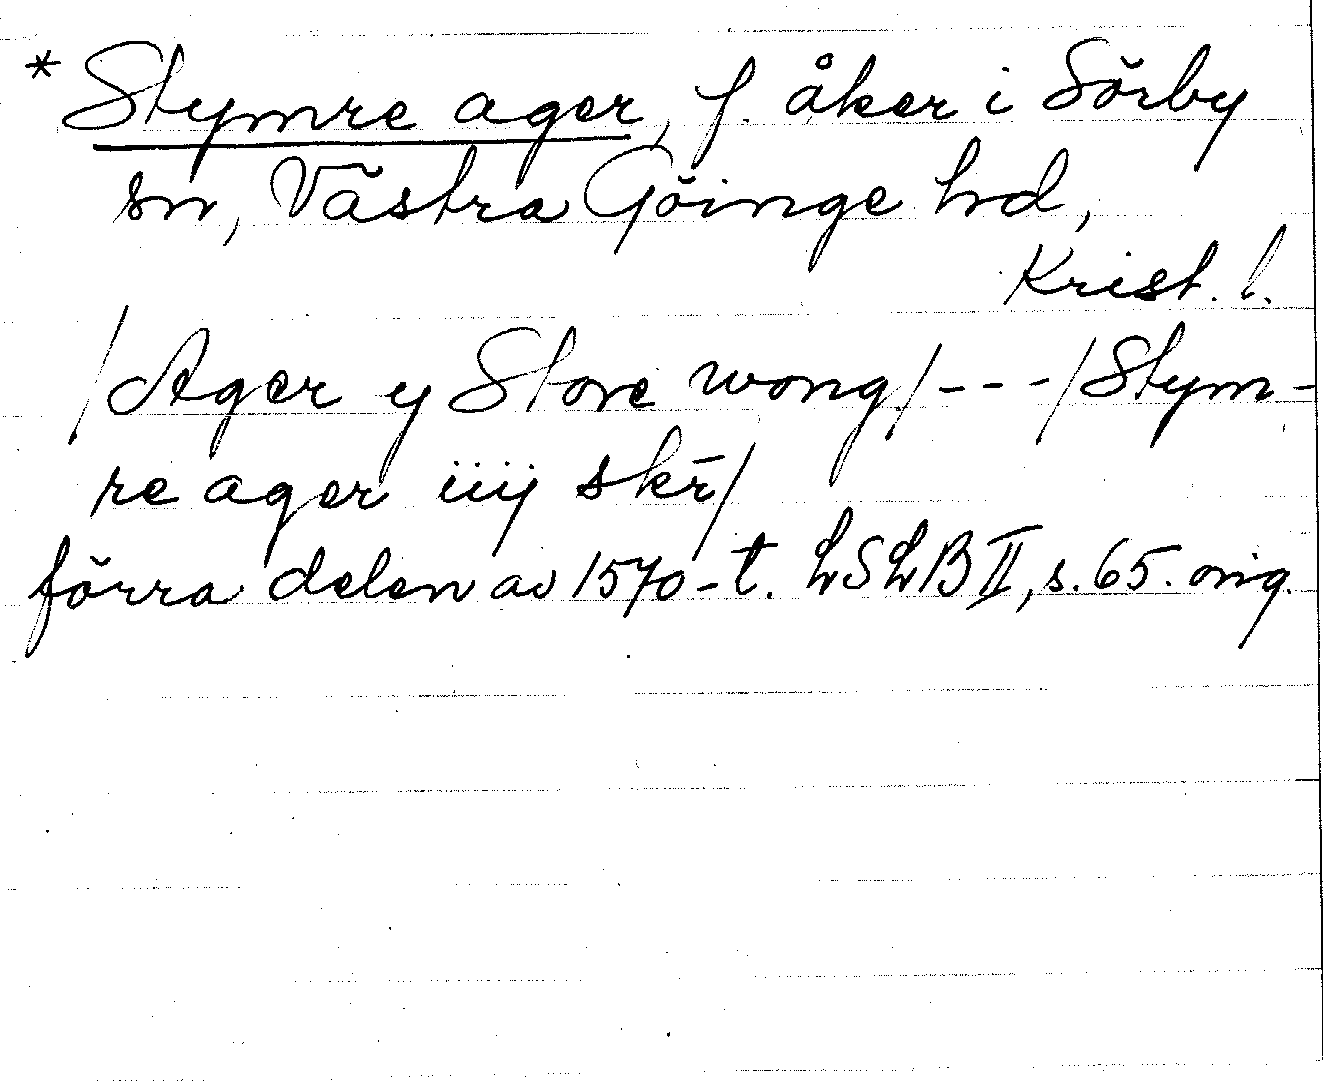 * Stymre ager, f. åker i Sörby
sn, Västra Göinge hd,
Krist. l.
/Ager y Store wong/---/Stym-
re ager iiij skr̄/
förra delen av 1570-t. LSLB II, s. 65. orig.